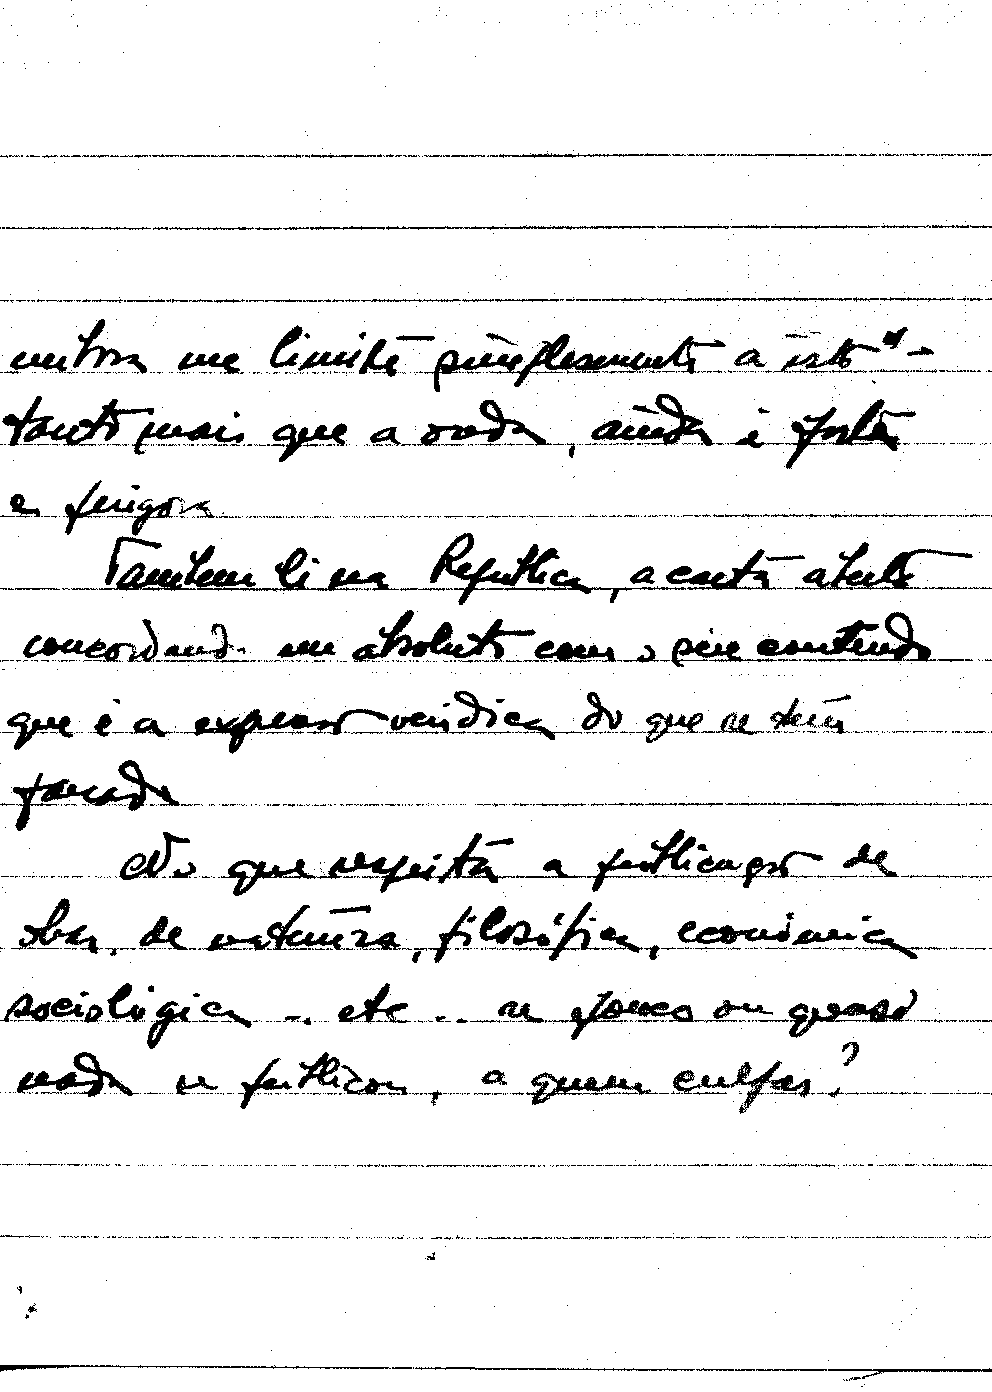 embora me limite simplesmente a isto" -
tanto mais que a onda, ainda é forte
e perigosa
Também li na República, a carta aberta
concordando em absoluto com o seu conteudo
que é a expressão veridica do que se tem
passado
No que respeita a publicação de
obras, de natureza, filosófica, económica
sociológica ... etc ... se pouco ou quase
nada se publicou, a quem culpar?